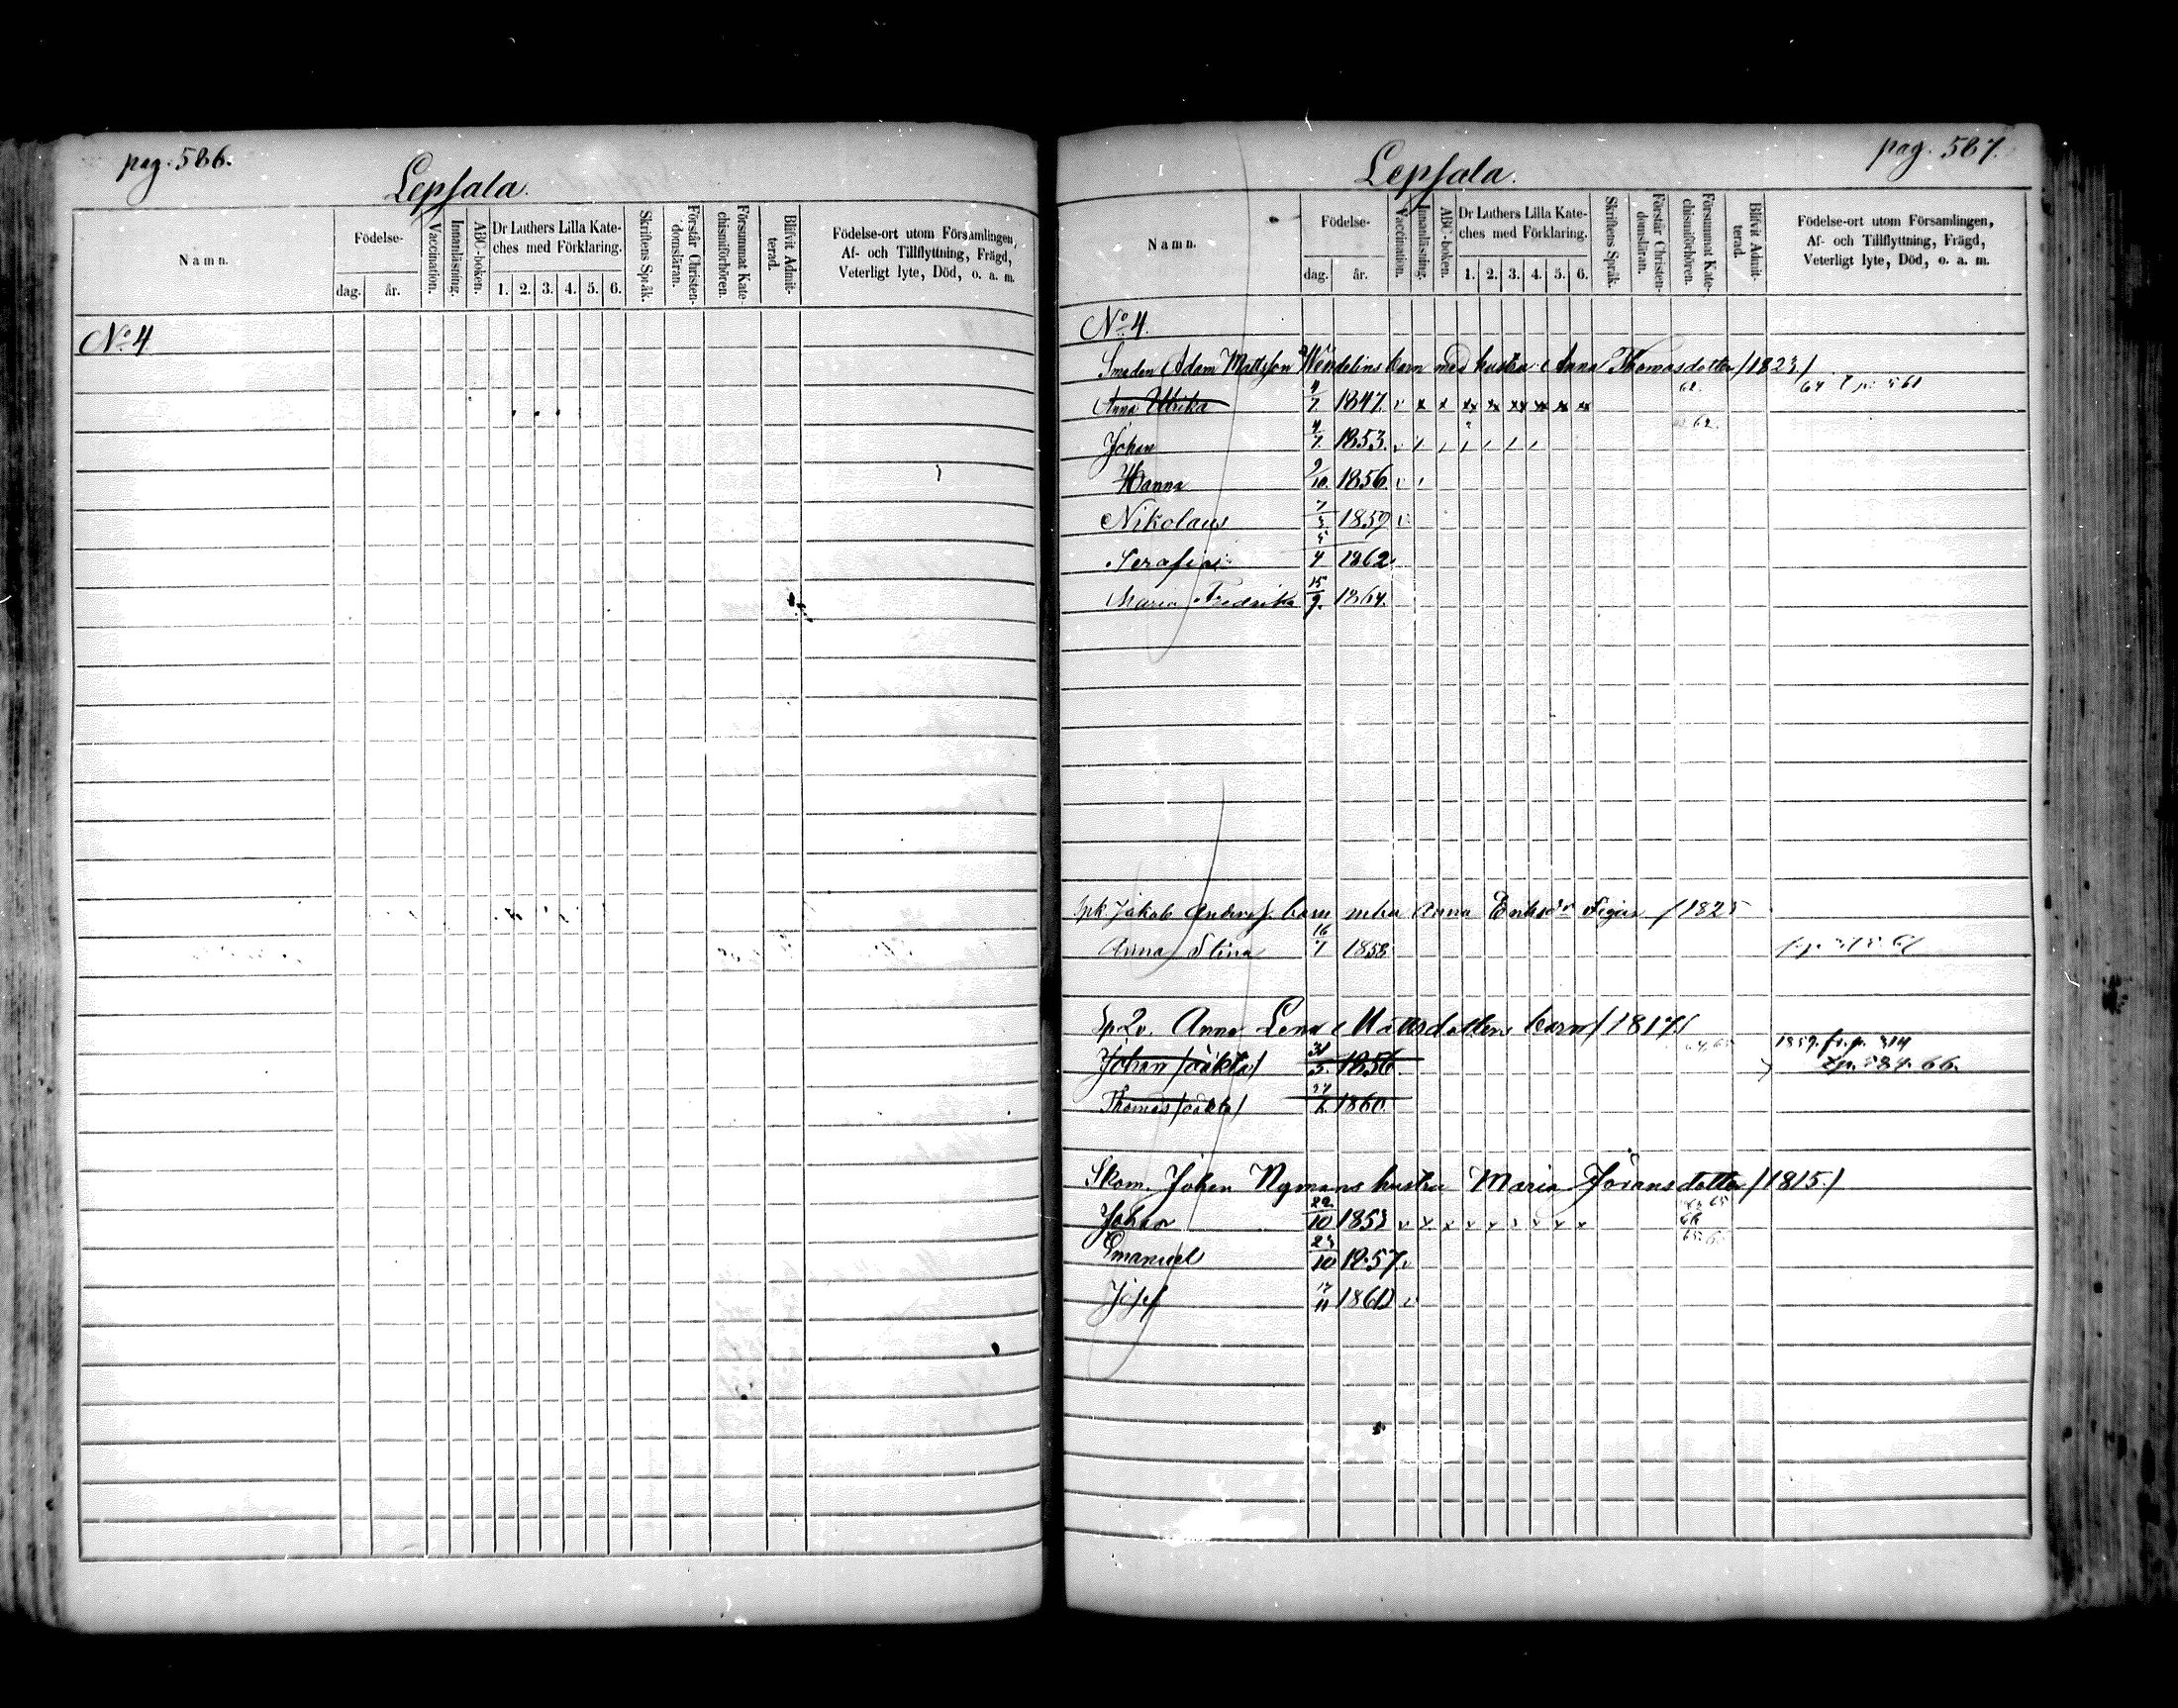 pag. 586.
Lepsala.
Namn.
Födelse-
dag.
år.
Vaccination.
Innanläsning.
ABC-boken.
Dr Luthers Lilla Kate-
ches med Förklaring.
1. 2. 3. 4. 5. 6.
Skriftens Språk.
Förstår Christen-
domsläran.
Försummat Kate-
chismiförhören.
Blifvit Admit-
terad.
Födelse-ort utom Församlingen,
Af- och Tillflyttning, Frägd,
Veterligt lyte, Död, o. a. m.
No 4
pag. 587.
Lepsala.
Namn.
Födelse-
dag.
år.
Vaccination.
Innanläsning.
ABC-boken.
Dr Luthers Lilla Kate-
ches med Förklaring.
1. 2. 3. 4. 5. 6.
Skriftens Språk.
Förstår Christen-
domsläran.
Försummat Kate-
chismiförhören.
Blifvit Admit-
terad.
Födelse-ort utom Församlingen,
Af- och Tillflyttning, Frägd,
Veterligt lyte, Död, o. a. m.
No 4.
Smeden Adam Mattsson Wendelins barn med hustru Anna Thomasdotter /1823/
Anna Ulrika 4/7 1847. v x x xx xx xx xx xx xx 62.
Johan 4/7. 1853. 62.
Hanna 9/10. 1856. v
Nikolaus 7/3 1859 v
Serafia 5/4 1862.
Maria Fredrika 15/9. 1864.
Jakob barn Anna /1825
Anna Stina 16/7 1858
Anna Lena Mattsdotters barn /1817/
Johan /oäkta/ 31/3. 1856 1859. fr. p. 314
tp. 584. 66.
Thomas /oäkta/ 1860.
Skom. Johan Nymans hustru Maria Göransdotter /1815./
Johan 29/10 1853 66
Emanuel 23/10 1857 v
Josef 17/11 1860 v